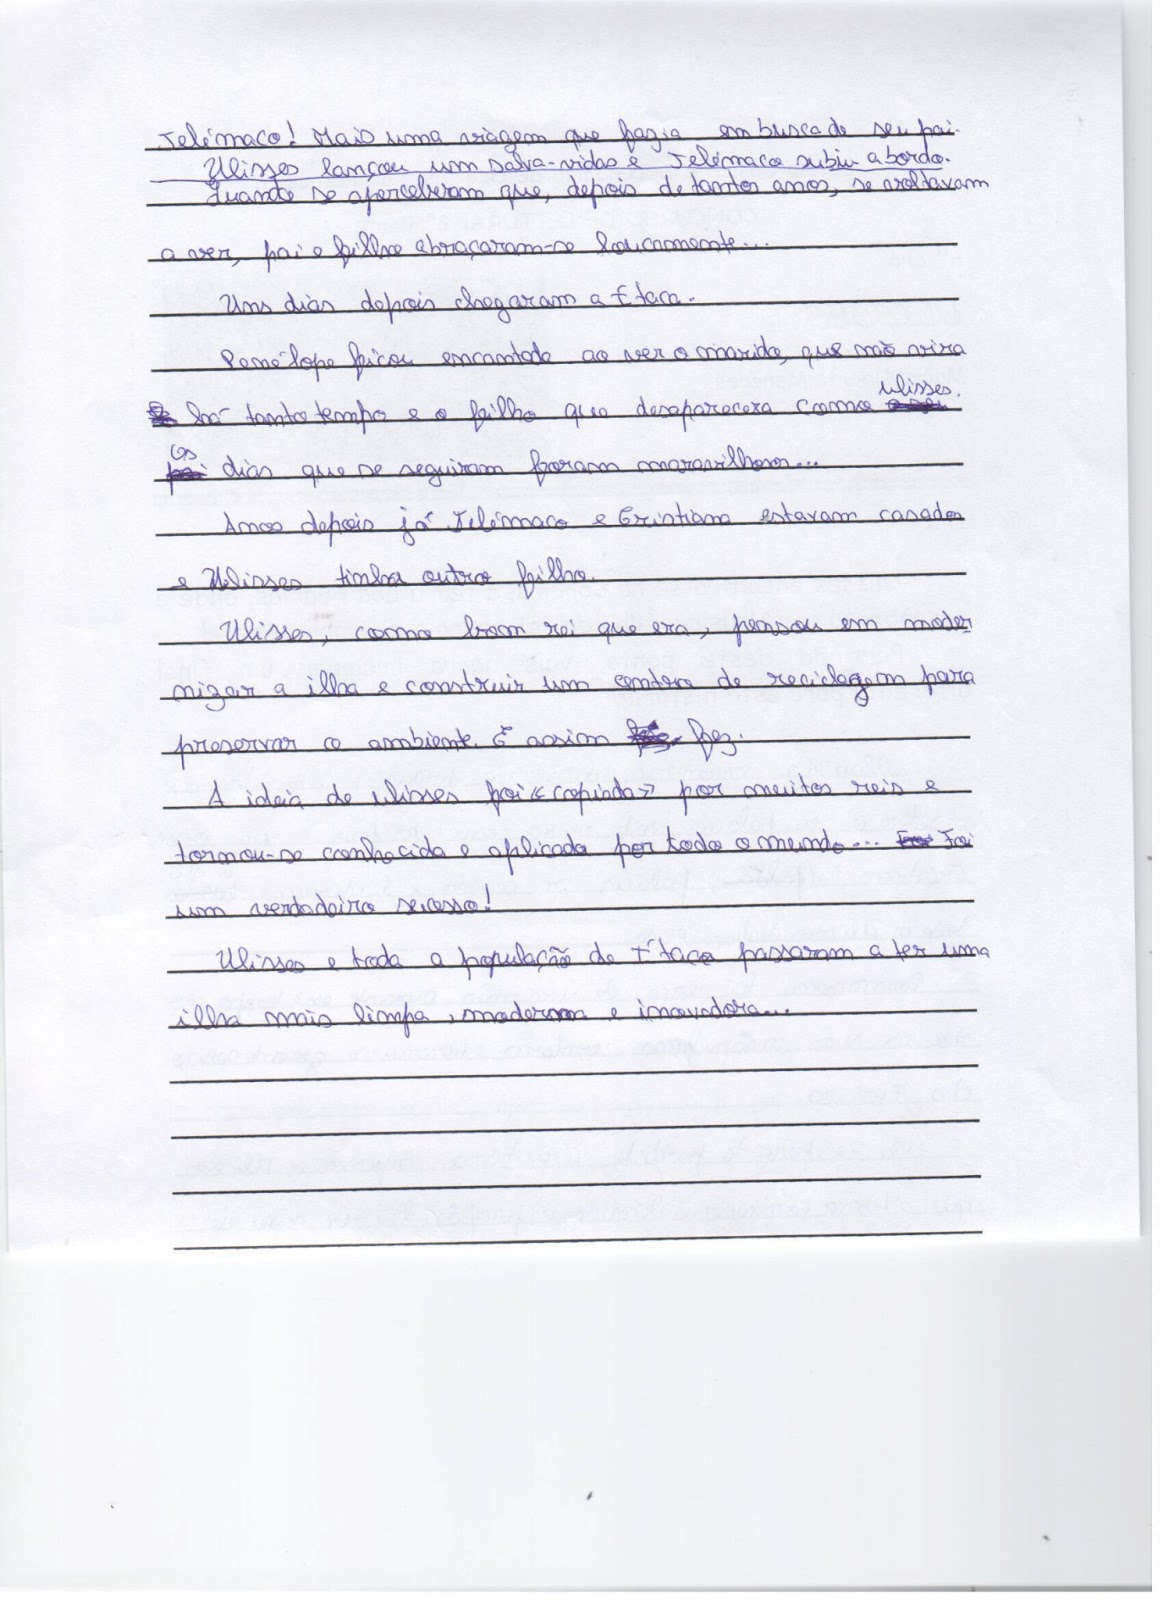 Telémaco! Mais uma viagem que fazia em busca de seu pai.
Ulisses lançou um salva-vidas e Telémaco subiu a bordo.
Quando se aperceberam que, depois de tantos anos, se voltavam
a ver, pai e filho abraçaram-se loucamente...
Uns dias depois chegaram a Ítaca.
Penélope ficou encantada ao ver o marido, que não vira
há tanto tempo e o filho que desaparecera como Ulisses.
Os dias que se seguiram foram maravilhosos...
Anos depois já Telémaco e Cristiana estavam casados
e Ulisses tinha outro filho.
Ulisses, como bom rei que era, pensou em moder
nizar a ilha e construir um centro de reciclagem para
preservar o ambiente. E assim fez.
A ideia de Ulisses foi «copiada» por muitos reis e
tornou-se conhecida e aplicada por todo o mundo... Foi
um verdadeiro sucesso!
Ulisses e toda a população de Ítaca passaram a ter uma
ilha mais limpa, moderna e inovadora...